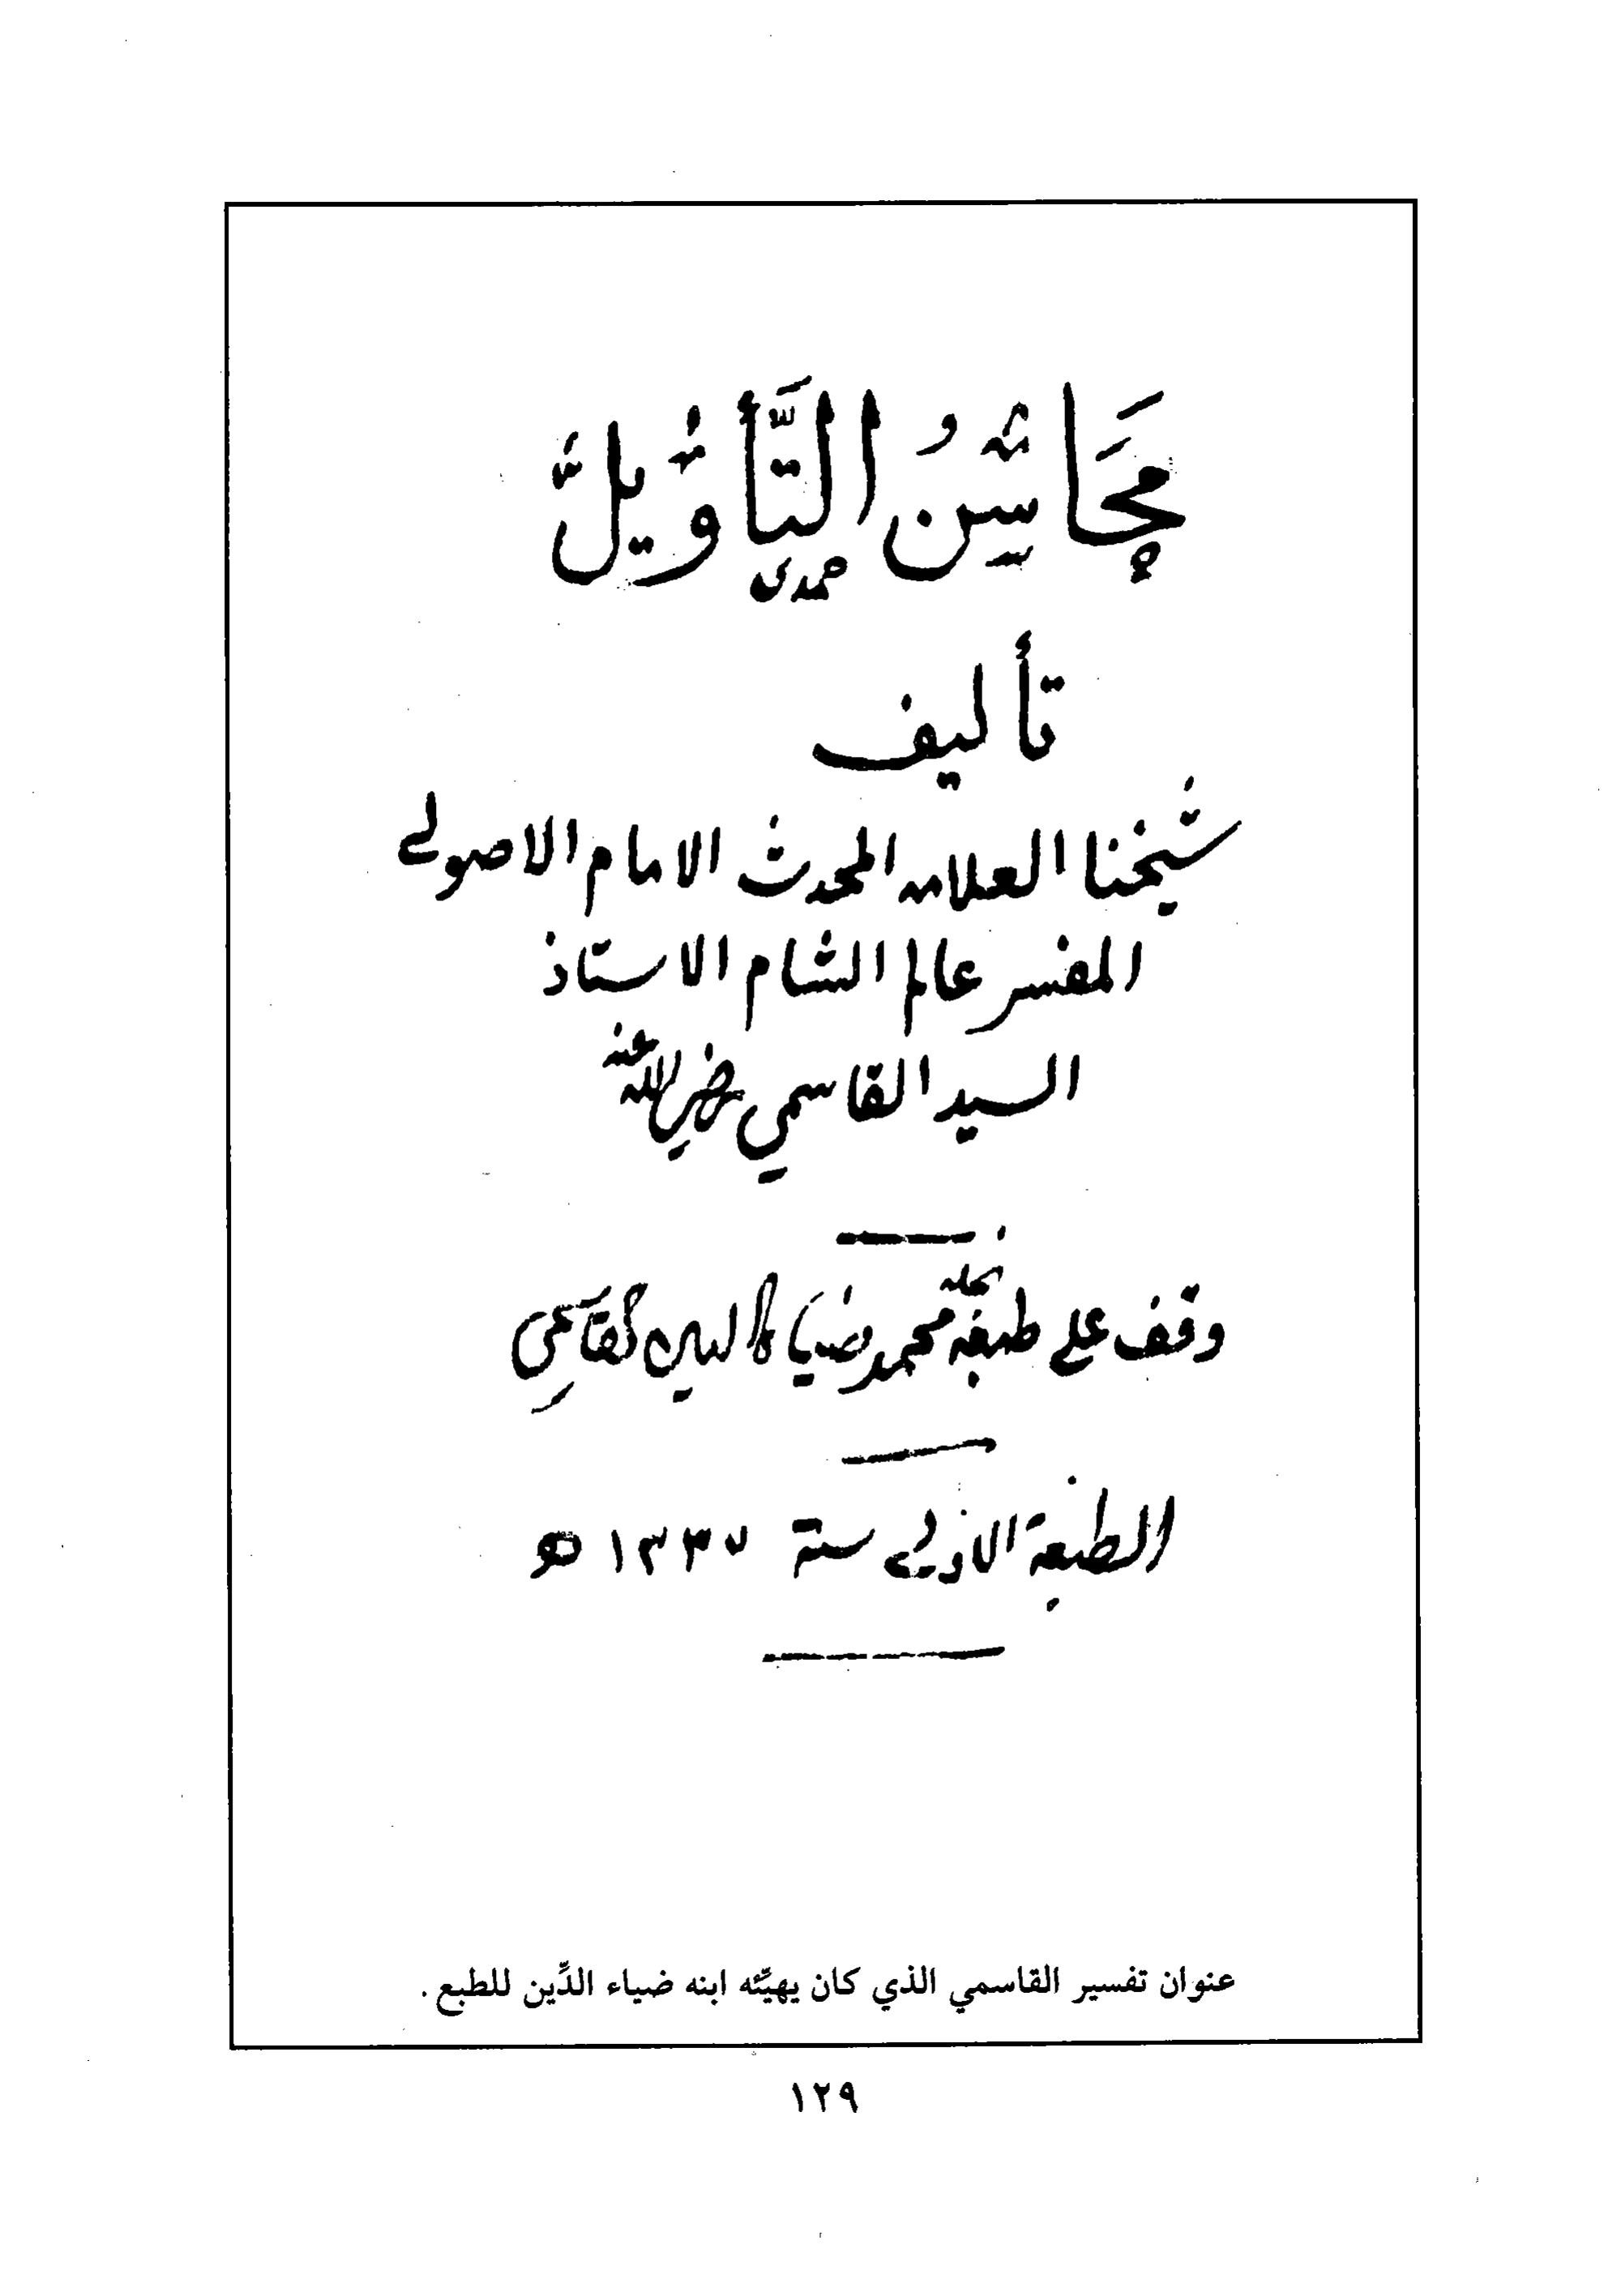 مَحَاسِنُ التَّأْوِيلْ
حمدي
تأليف
شيخنا العلامه المحدث الامام الاصولي
المفسر عالم الشام الاستاذ
السيد القاسمي رضي الله عنه
نجله
وقف على طبعه محمد ضياء الدين القاسمي
الطبعة الاولى سنة ١٣٣٧ ه
عنوان تفسير القاسمي الذي كان يهيِّئه ابنه ضياء الدِّين للطبع .
١٢٩